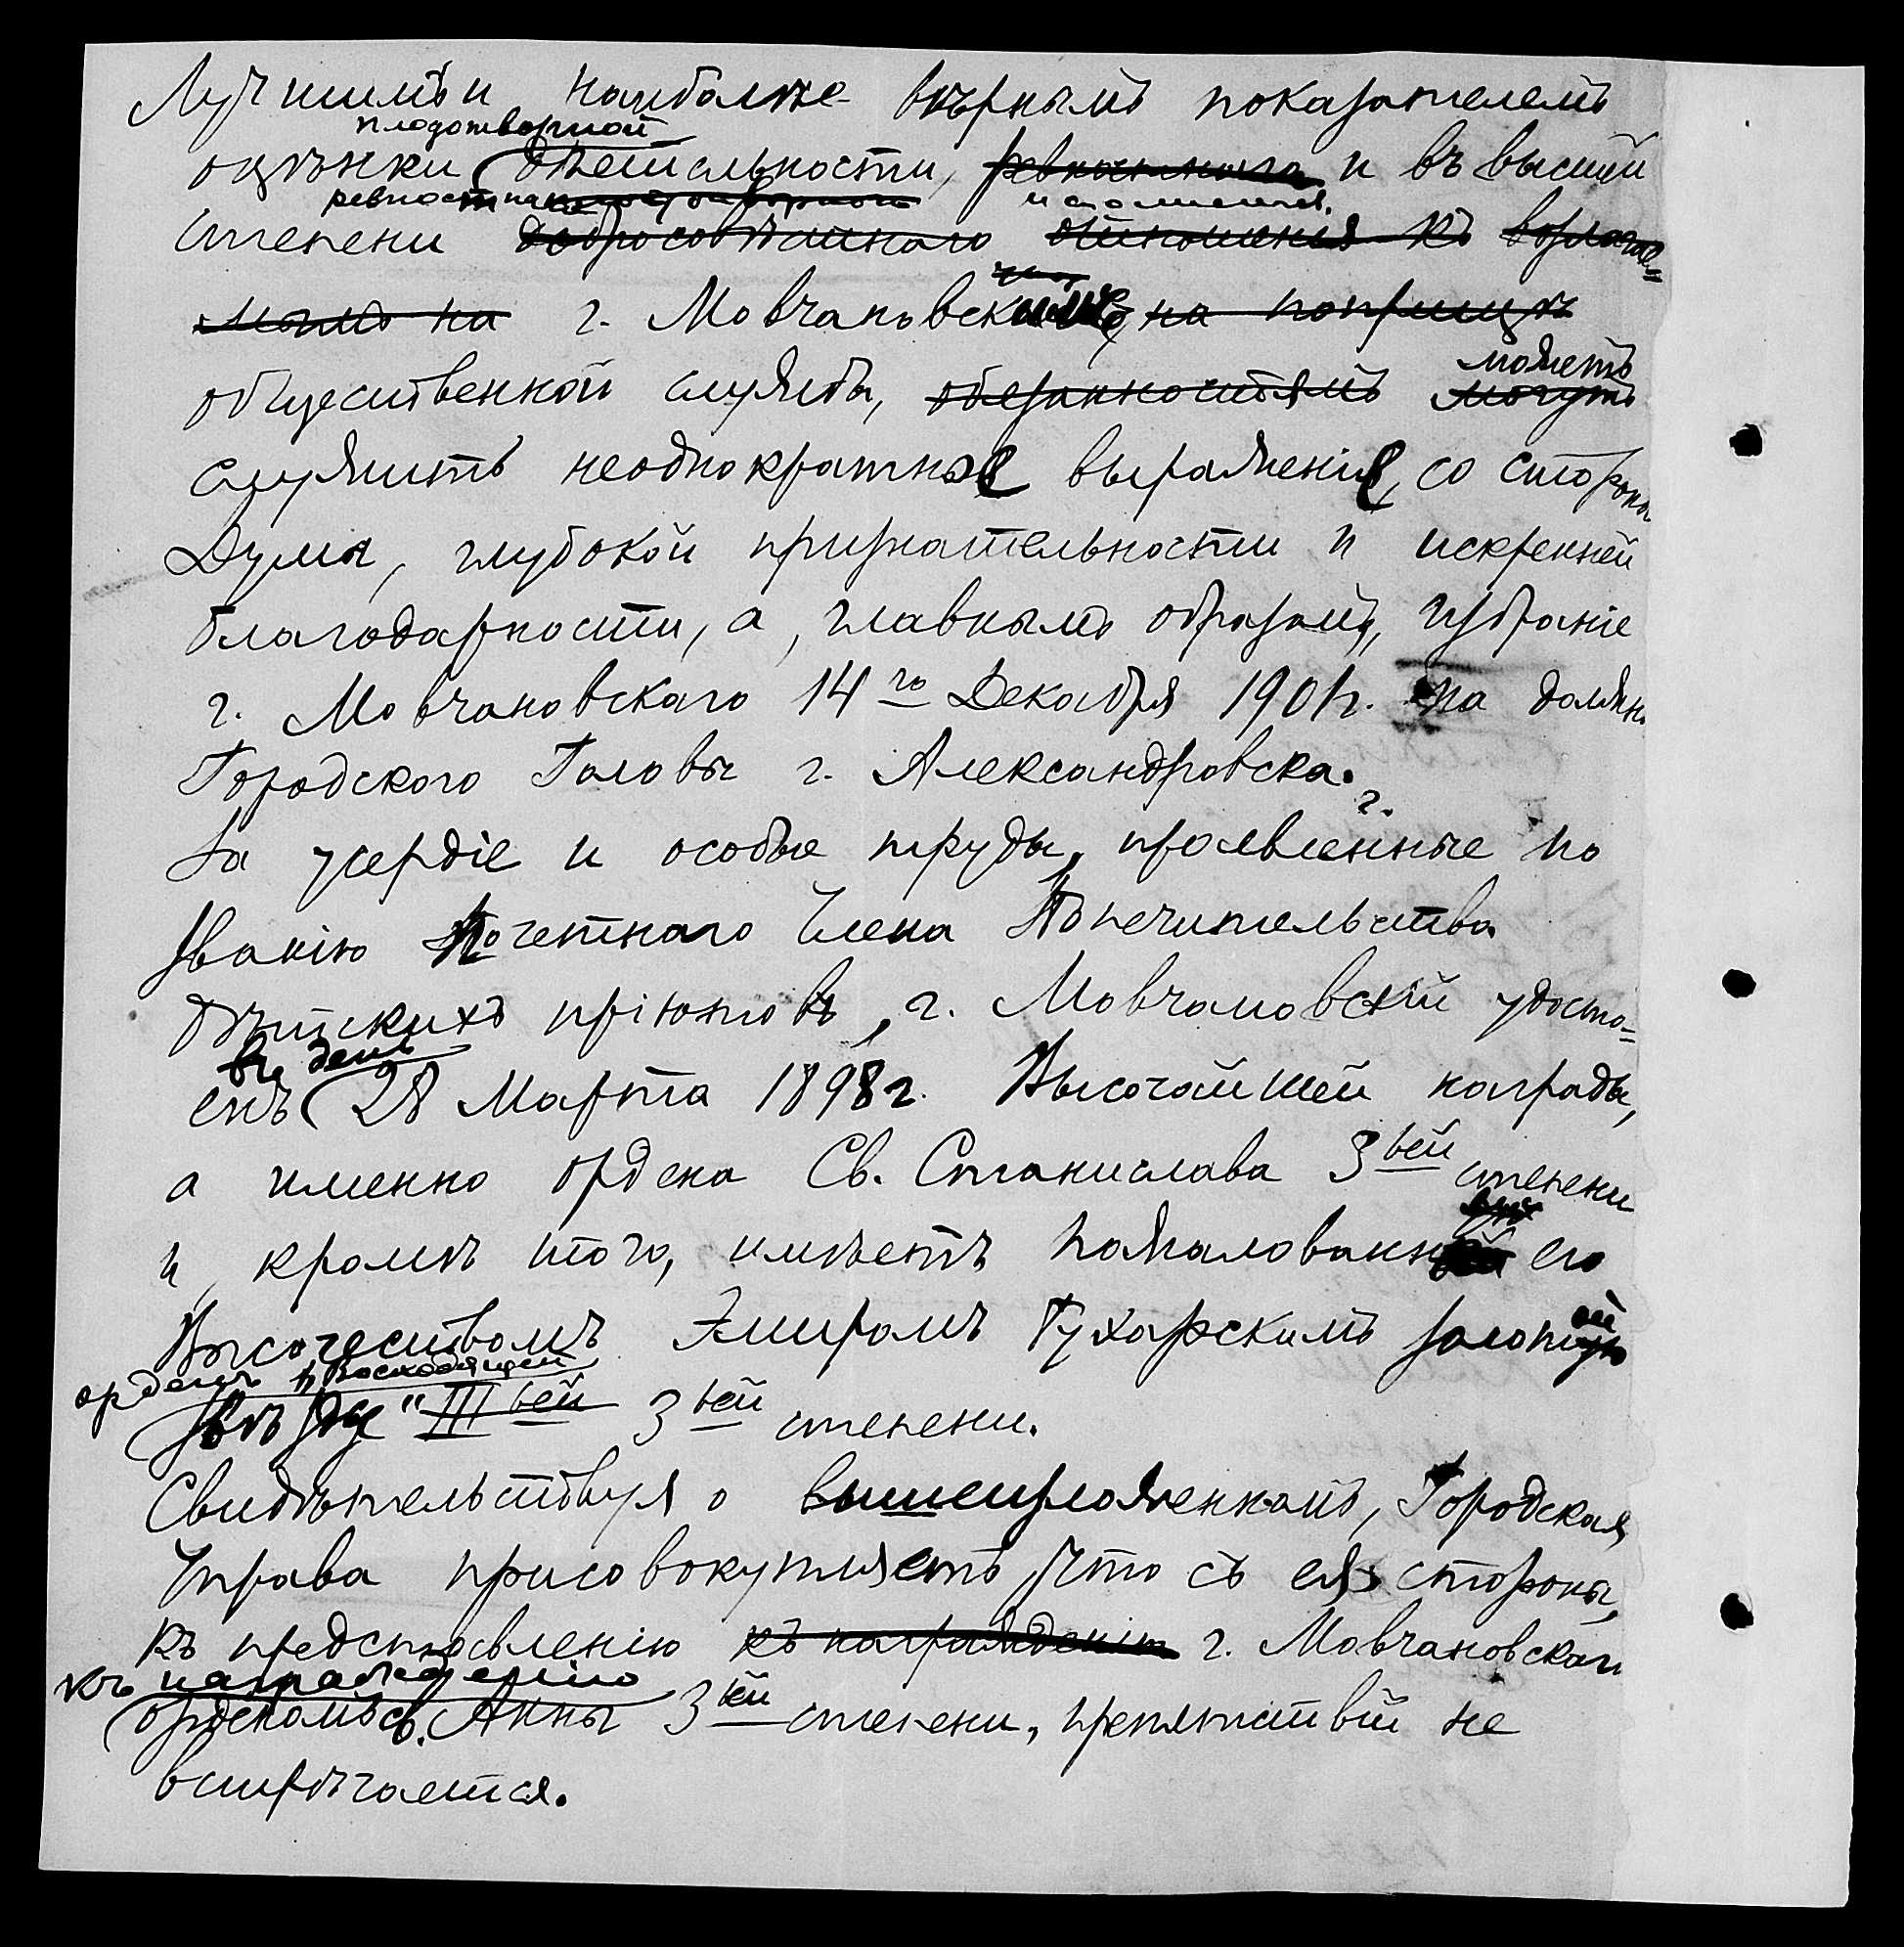 Лучшимъ и наиболѣе вѣрнымъ показателемъ
плодотворной
оцѣнки дѣятельности, и въ высшей
ревностнаго исполненія,
степени добросовѣстнаго отношенія къ возлагае=
мымъ на г. Мовчановскимъ, на поприщѣ
можетъ
общественной службы, обязанностямъ могутъ
служить неоднократное выраженіе, со стороны
Думы, глубокой признательности и искренней
благодарности, а, главнымъ образомъ, избраніе
г. Мовчановскаго 14го Декабря 1901г. на должн.
Городского Головы г. Александровска.
За усердіе и особые труды, проявленные по
званію Почетнаго Члена Попечительства
дѣтскихъ пріютовъ, г. Мовчановскій удосто=
въ день
енъ 28 Марта 1898г. Высочайшей награды,
а именно ордена Св. Станислава 3ьей степени
и, кромѣ того, имѣетъ пожалованный его
Высочествомъ Эмиромъ Бухарскимъ золотой
орденъ "Восходящей
звѣзды" IIIьей 3ьей степени.
Свидѣтельствуя о вышеизложенномъ, Городская
Управа присовокупляетъ, что съ ея стороны,
къ представленію къ награжденію г. Мовчановскаго
къ награжденію
орденомъ св. Анны 3ьей степени, препятствій не
встрѣчается.